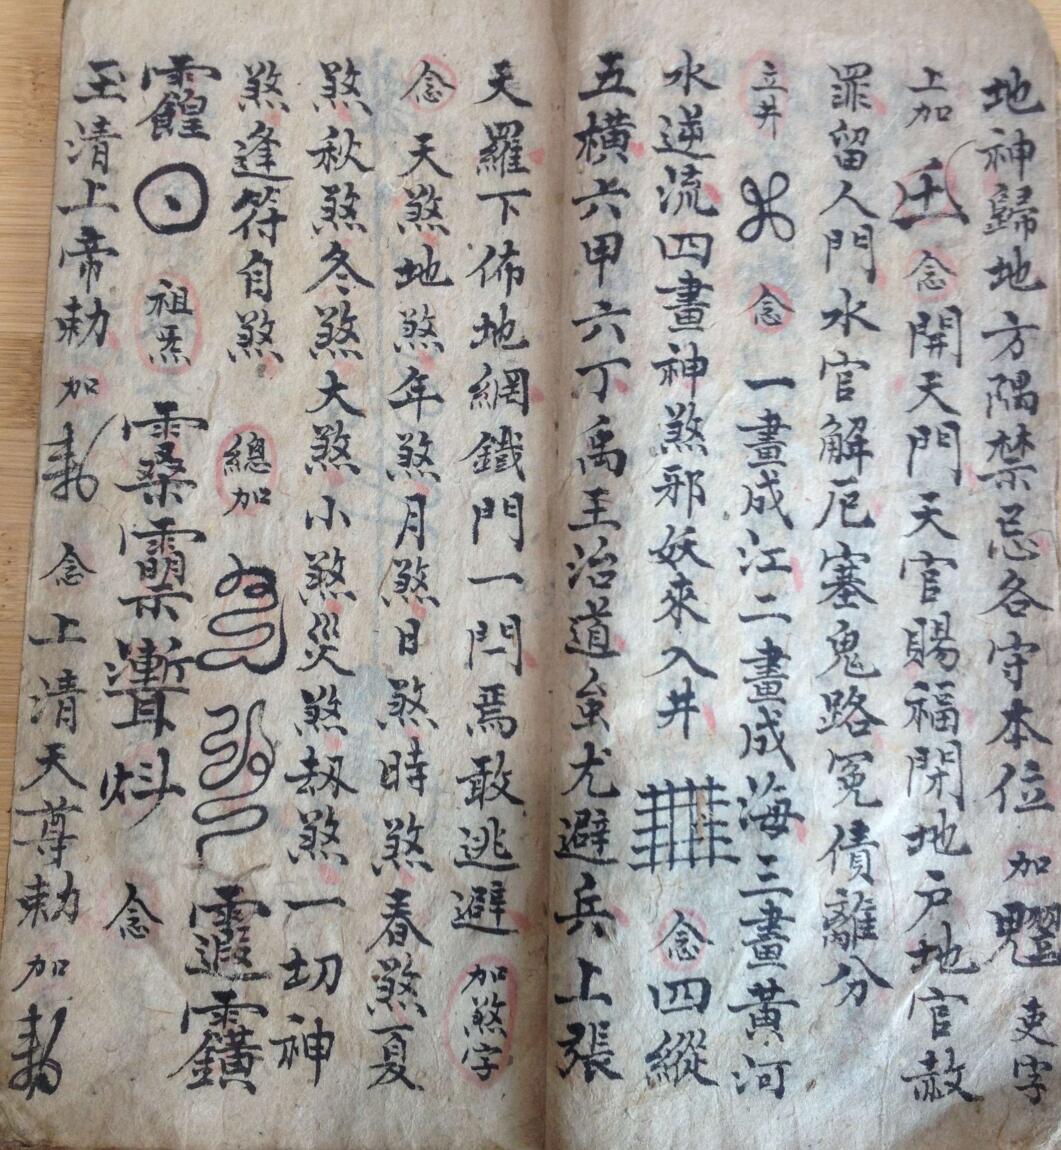 地神歸地方隅禁忌各守本位加 吏字
上加 念開天門天官賜福閉地戶地官赦
罪留人門水官解厄塞鬼路冤債離分
立井 念一畫成江二畫成海三畫黃河
水逆流四畫神煞邪妖來入井 念四縱
五橫六甲六丁禹王治道蚩尤避兵上張
天羅下佈地網鐵門一閂焉敢逃避加煞字
念天煞地煞年煞月煞日煞時煞春煞夏
煞秋煞冬煞大煞小煞災煞劫煞一切神
煞逢符自煞 總加
祖炁 念
玉清上帝勅加 念上清天尊勅加